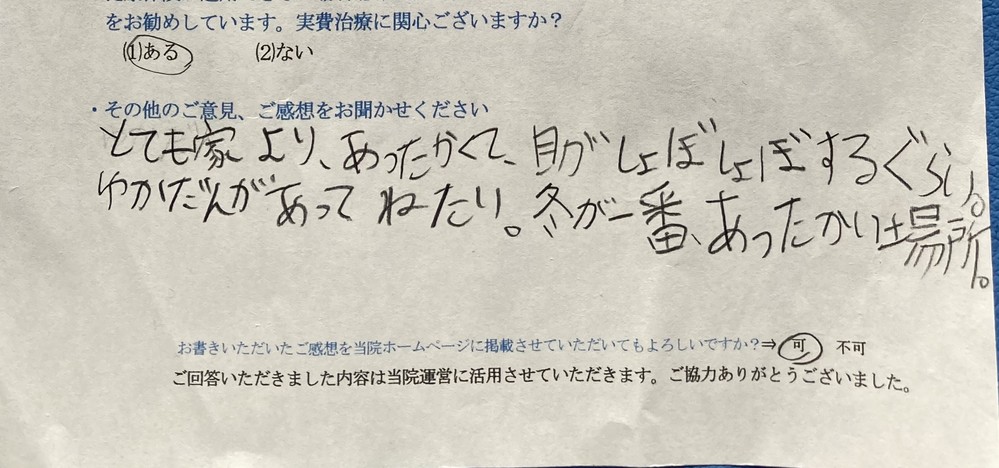 をお勧めしています。実費治療に関心ございますか？
(1)ある (2)ない
・その他のご意見、ご感想をお聞かせください
とても家より、あったかくて、目がしょぼしょぼするぐらい。
ゆかだんがあってねたり。冬が一番、あったかい場所。
お書きいただいたご感想を当院ホームページに掲載させていただいてもよろしいですか？⇒ 可 不可
ご回答いただきました内容は当院運営に活用させていただきます。ご協力ありがとうございました。